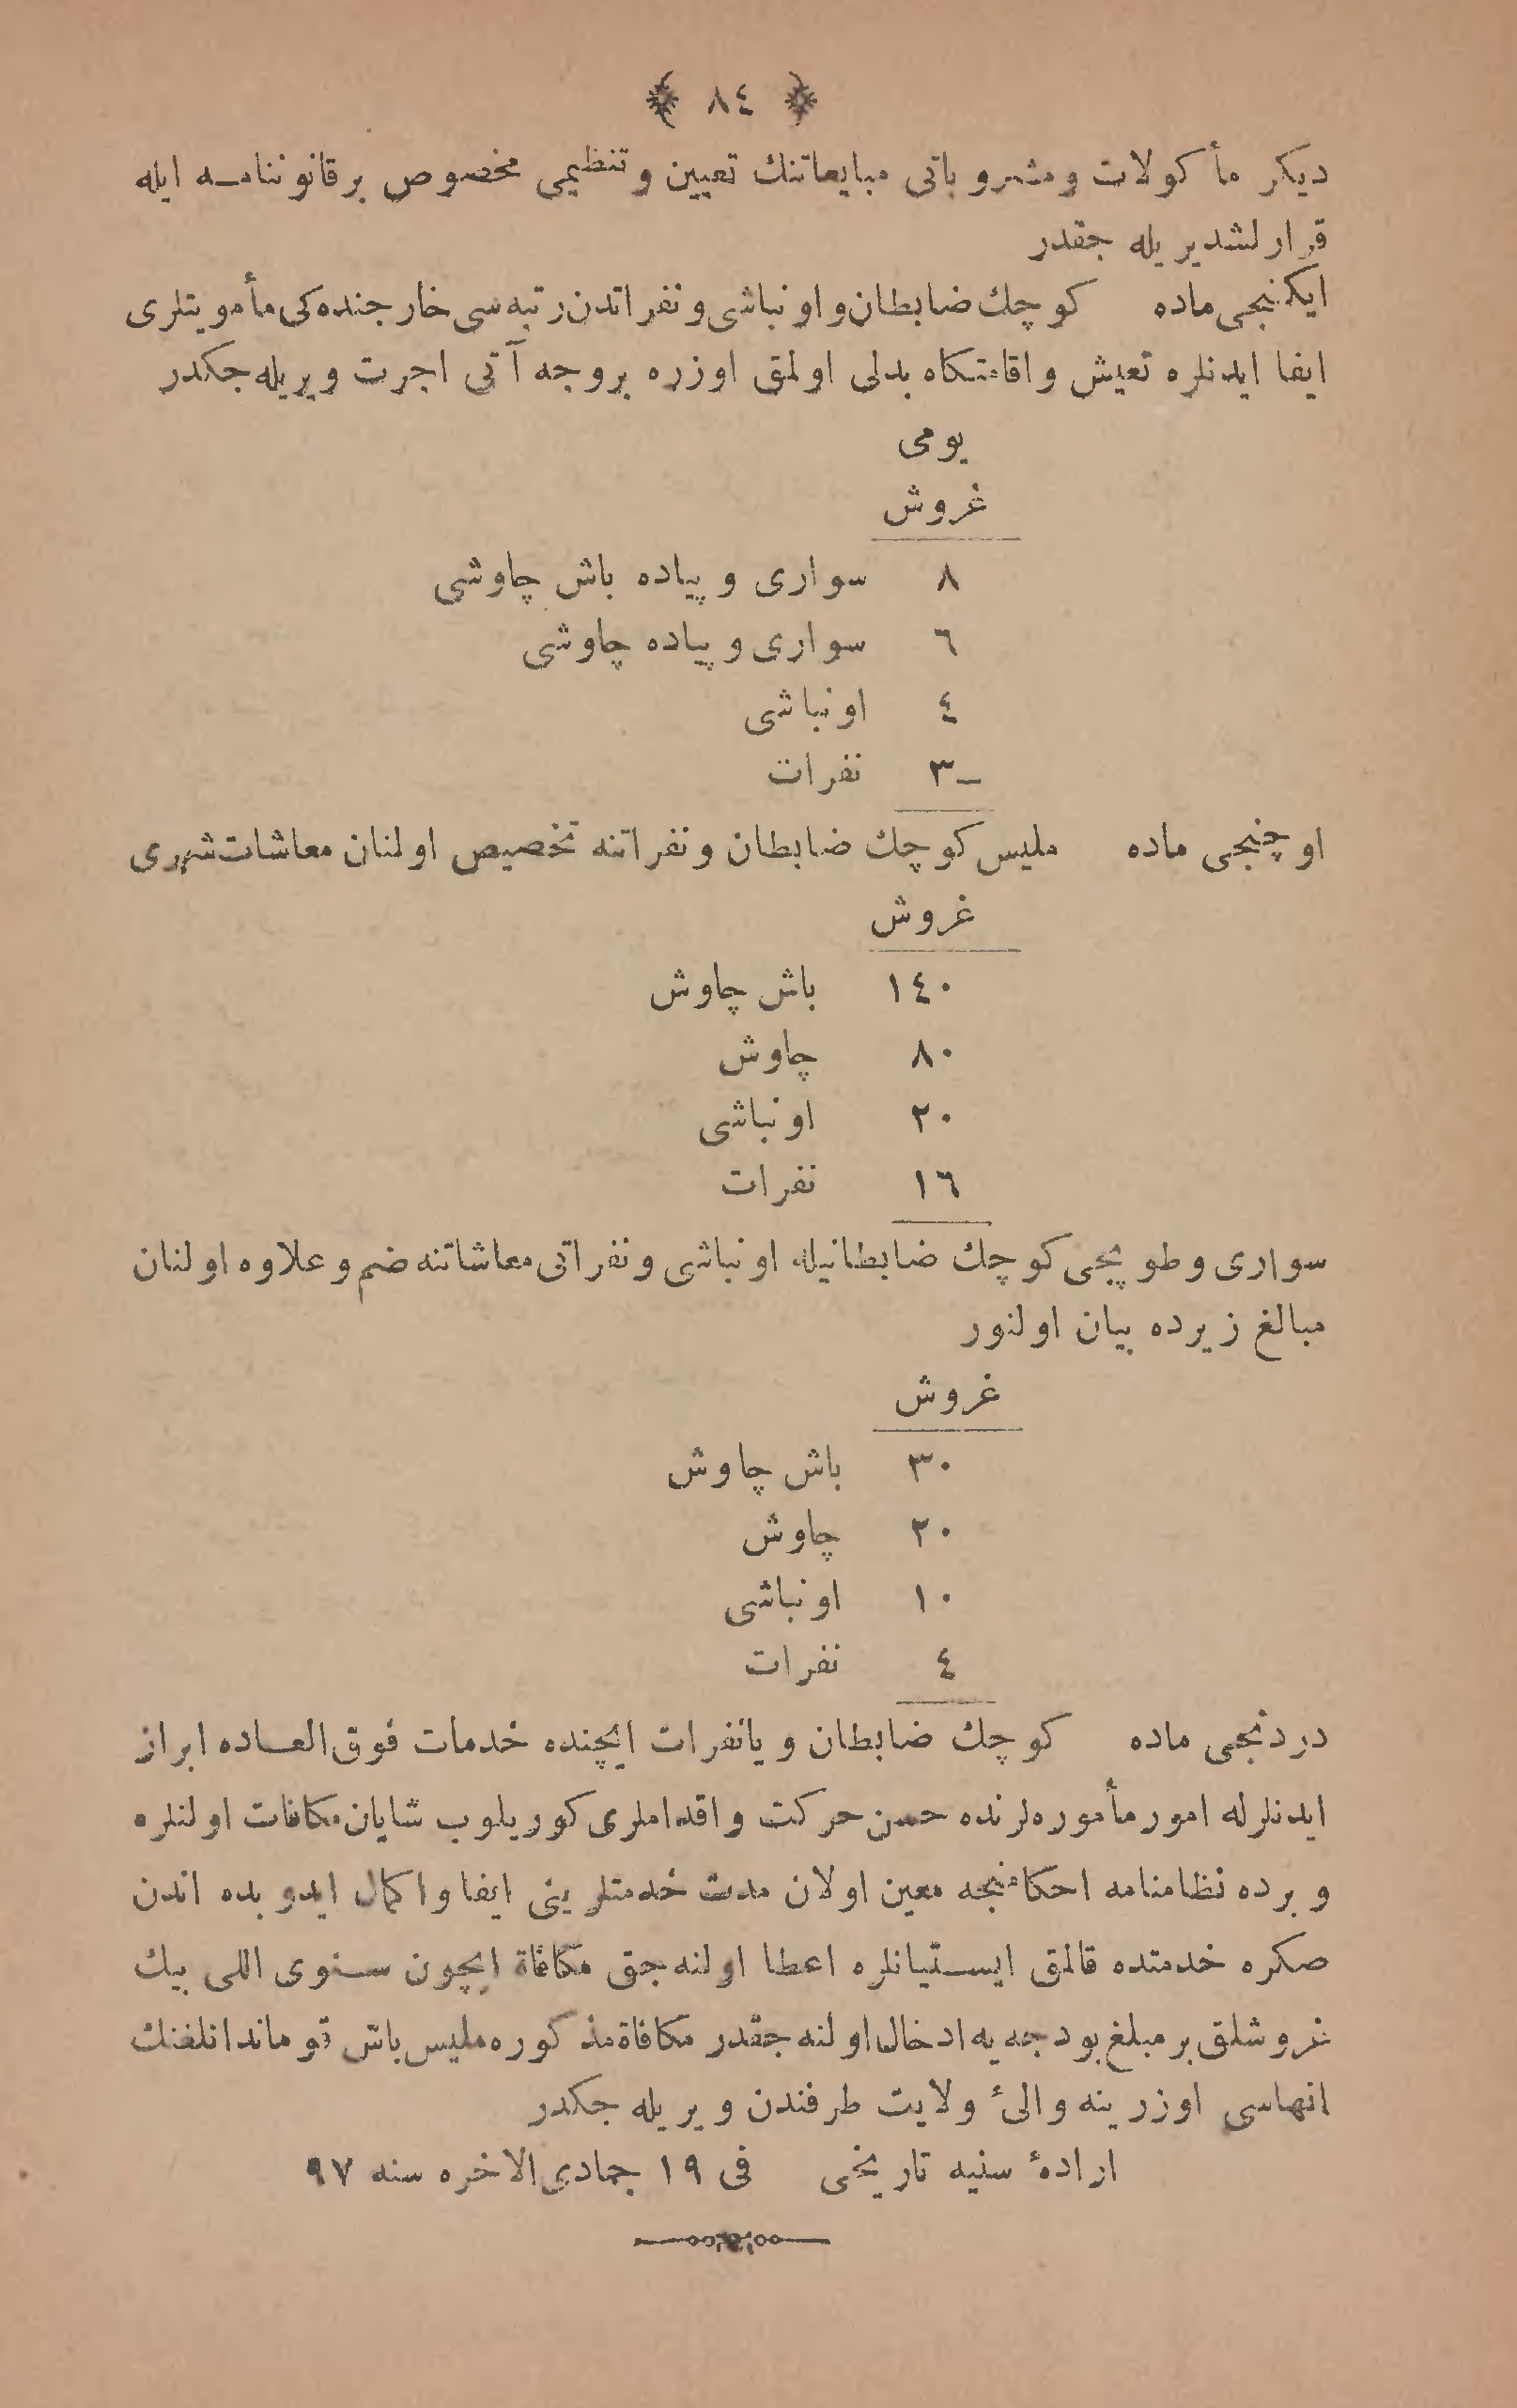 ﴿ ٨٤ ﴾
ديكر مأكولات ومشروباتى مبايعاتنك تعيين وتنظيمى مخصوص برقانوننامه ايله
قرارلشديريله جقدر
ايكنجى ماده كوچك ضابطان و اونباشى و نفراتدن رتبه سى خارجنده كى مأمويتلرى
ايفا ايدنلره تعيش و اقامتكاه بدلى اولمق اوزره بروجه آتى اجرت ويريله جكدر
يومى
غروش
٨ سوارى و پياده باش چاوشى
٦ سوارى و پياده چاوشى
٤ اونباشى
٣ نفرات
اوچنجى ماده مليس كوچك ضابطان و نفراتنه تخصيص اولنان معاشات شهرى
غروش
١٤٠ باش چاوش
٨٠ چاوش
٢٠ اونباشى
١٦ نفرات
سوارى و طوپجى كوچك ضابطانيله اونباشى و نفراتى معاشاتنه ضم و علاوه اولنان
مبالغ زيرده بيان اولنور
غروش
٣٠ باش چاوش
٢٠ چاوش
١٠ اونباشى
٤ نفرات
دردنجى ماده كوچك ضابطان و يا نفرات ايچنده خدمات فوق العاده ابراز
ايدنلرله امور مأموره لرنده حسن حركت و اقداملرى كوريلوب شايان مكافات اولنلره
و برده نظامنامه احكامنجه معين اولان مدت خدمتلرينى ايفا و اكمال ايدوبده اندن
صكره خدمتده قالمق ايستيانلره اعطا اولنه جق مكافاة ايچون سنوى اللى بيك
غروشلق بر مبلغ بودجه يه ادخال اولنه جقدر مكافاة مذكوره مليس باش قوماندانلغنك
انهاسى اوزرينه والىٔ ولايت طرفندن ويريله جكدر
ارادهٔ سنيه تاريخى فى ١٩ جمادى الاخره سنه ٩٧